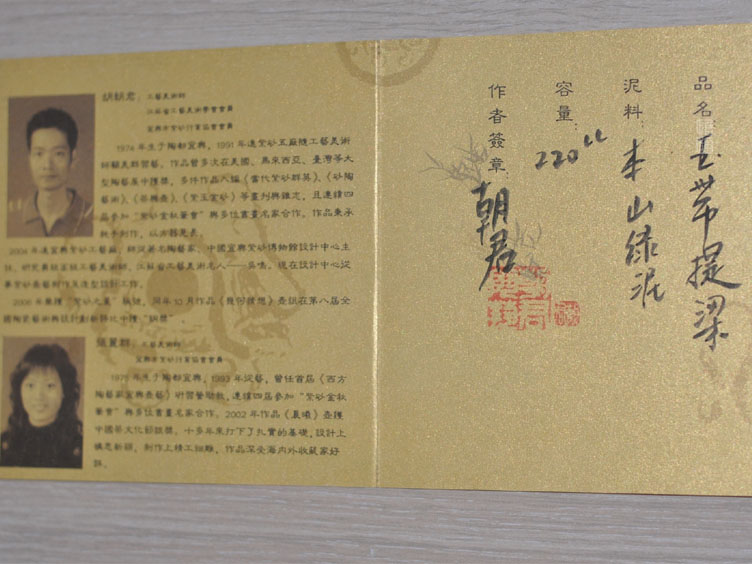 胡朝君：工藝美術師
江蘇省工藝美術學會會員
宜興市紫砂行業協會會員
1974 年生于陶都宜興，1991 年進紫砂五廠隨工藝美術
師顧美群習藝，作品曾多次在美國、馬來西亞、臺灣等大
型陶藝展中獲獎，多件作品入編《當代紫砂群英》、《砂陶
藝術》、《茶與壺》、《紫玉金砂》等畫刊與雜志，且連續四
届參加“紫砂金秋筆會”與多位書畫名家合作。作品秉承
純手制作，以
2004 年進宜興紫砂工藝廠，師從著名陶藝家、中國宜興紫砂博物館設計中心主
任、研究員級高級工藝美術師、江蘇省工藝美術名人——吳鳴，現在設計中心從
事紫砂壺藝創作及造型設計工作。
2006 年榮獲“紫砂之星”稱號，同年 10 月作品《幾何隨想》壺組在第八届全
國陶瓷藝術與設計創新評比中獲“銅獎”
工藝美術師
宜興市紫砂行業協會會員
1975 年生于陶都宜興，1993 年從藝，曾任首届《西方
陶藝家宜興壺藝》研習營助教，連續四届參加“紫砂金秋
筆會”與多位書畫名家合作。2002 年作品《晨曦》壺獲
中國茶文化節銀獎。十多年來打下了扎實的基礎，設計上
構思新穎，制作上精工細雕，作品深受海內外收藏家好
評。
品名：玉帶提梁
泥料：本山綠泥
容量：220cc
作者簽章：朝君